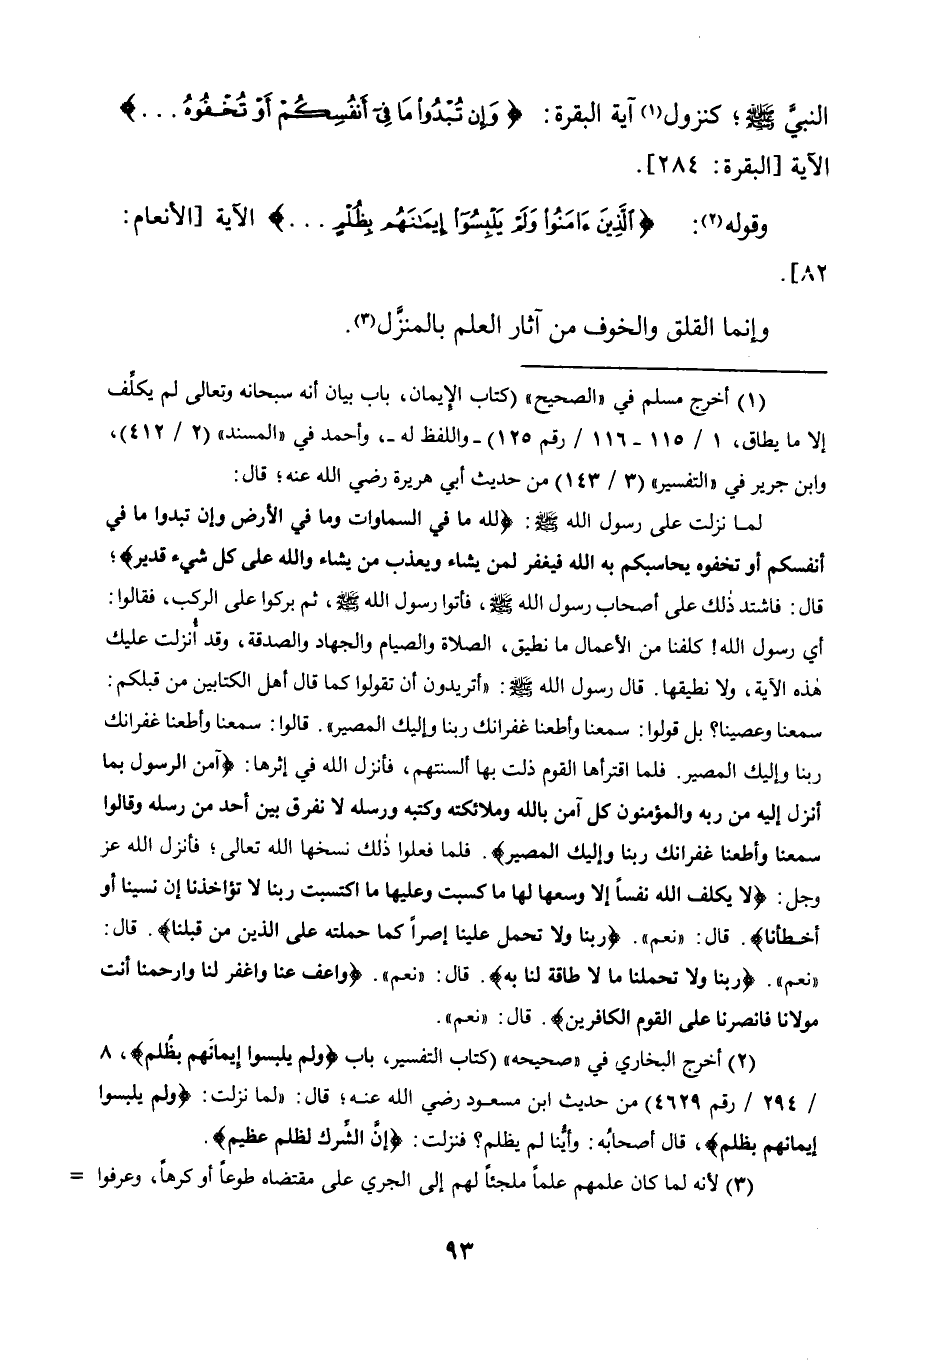 النبيَّ ﷺ؛ كنزول(١) آية البقرة: ﴿وَإِن تُبْدُوا۟ مَا فِىٓ أَنفُسِكُمْ أَوْ تُخْفُوهُ...﴾
الآية [البقرة: ٢٨٤].
وقوله(٢): ﴿ٱلَّذِينَ ءَامَنُوا۟ وَلَمْ يَلْبِسُوٓا۟ إِيمَـٰنَهُم بِظُلْمٍ...﴾ الآية [الأنعام:
٨٢].
وإنما القلق والخوف من آثار العلم بالمنزَّل(٣).
(١) أخرج مسلم في «الصحيح» (كتاب الإيمان، باب بيان أنه سبحانه وتعالى لم يكلِّف
إلا ما يطاق، ١ / ١١٥ - ١١٦ / رقم ١٢٥) - واللفظ له -، وأحمد في «المسند» (٢ / ٤١٢)،
وابن جرير في «التفسير» (٣ / ١٤٣) من حديث أبي هريرة رضي الله عنه؛ قال:
لما نزلت على رسول الله ﷺ: ﴿لله ما في السماوات وما في الأرض وإن تبدوا ما في
أنفسكم أو تخفوه يحاسبكم به الله فيغفر لمن يشاء ويعذب من يشاء والله على كل شيء قدير﴾؛
قال: فاشتد ذٰلك على أصحاب رسول الله ﷺ، فأتوا رسول الله ﷺ، ثم بركوا على الركب، فقالوا:
أي رسول الله! كلفنا من الأعمال ما نطيق، الصلاة والصيام والجهاد والصدقة، وقد أُنزلت عليك
هٰذه الآية، ولا نطيقها. قال رسول الله ﷺ: «أتريدون أن تقولوا كما قال أهل الكتابين من قبلكم:
سمعنا وعصينا؟ بل قولوا: سمعنا وأطعنا غفرانك ربنا وإليك المصير». قالوا: سمعنا وأطعنا غفرانك
ربنا وإليك المصير. فلما اقترأها القوم ذلت بها ألسنتهم، فأنزل الله في إثرها: ﴿آمن الرسول بما
أنزل إليه من ربه والمؤمنون كل آمن بالله وملائكته وكتبه ورسله لا نفرق بين أحد من رسله وقالوا
سمعنا وأطعنا غفرانك ربنا وإليك المصير﴾. فلما فعلوا ذٰلك نسخها الله تعالى؛ فأنزل الله عز
وجل: ﴿لا يكلف الله نفساً إلا وسعها لها ما كسبت وعليها ما اكتسبت ربنا لا تؤاخذنا إن نسينا أو
أخطأنا﴾. قال: «نعم». ﴿ربنا ولا تحمل علينا إصراً كما حملته على الذين من قبلنا﴾. قال:
«نعم». ﴿ربنا ولا تحملنا ما لا طاقة لنا به﴾. قال: «نعم». ﴿واعف عنا واغفر لنا وارحمنا أنت
مولانا فانصرنا على القوم الكافرين﴾. قال: «نعم».
(٢) أخرج البخاري في «صحيحه» (كتاب التفسير، باب ﴿ولم يلبسوا إيمانَهم بظُلم﴾، ٨
/ ٢٩٤ / رقم ٤٦٢٩) من حديث ابن مسعود رضي الله عنه؛ قال: «لما نزلت: ﴿ولم يلبسوا
إيمانهم بظلم﴾، قال أصحابُه: وأيُّنا لم يظلم؟ فنزلت: ﴿إنَّ الشِّرك لظلم عظيم﴾.
(٣) لأنه لما كان علمهم علماً ملجئاً لهم إلى الجري على مقتضاه طوعاً أو كرهاً، وعرفوا =
٩٣